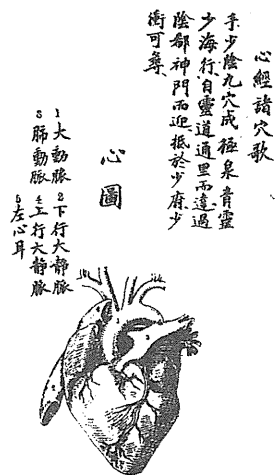 心經諸穴歌
手少陰九穴成極泉青靈
少海行自靈道通里而達過
陰郄神門而迎抵於少府少
衝可尋
心圖
1大動脈 2下行大静脈
3肺動脈 4上行大静脈
5左心耳